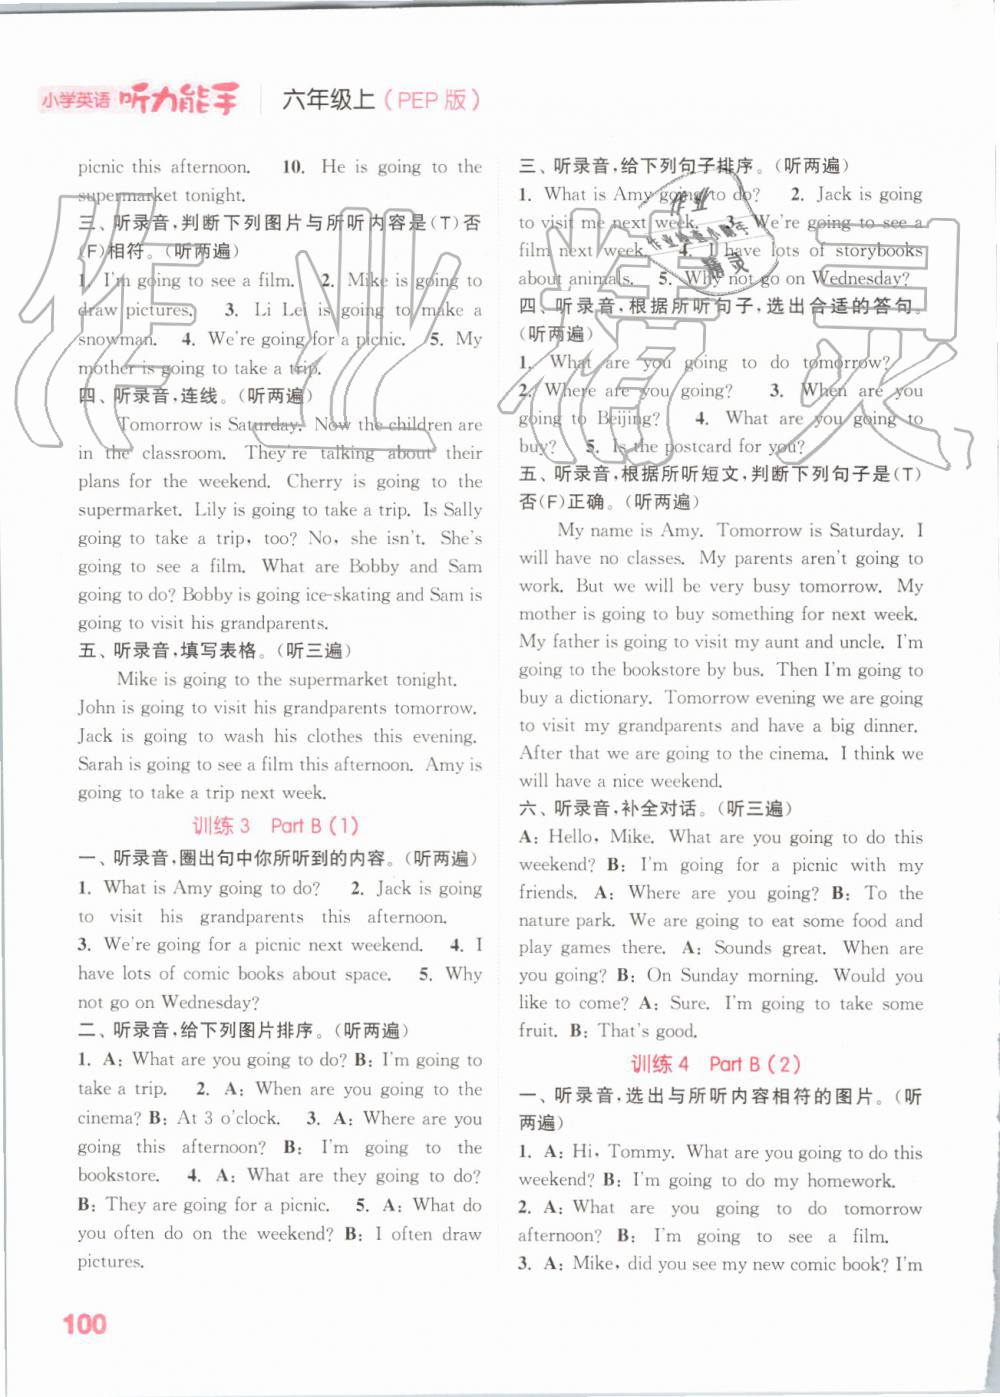 小学英语 听力能手 六年级上(PEP版)
picnic this afternoon. 10. He is going to the
supermarket tonight.
三、听录音,判断下列图片与所听内容是(T)否
(F)相符。(听两遍)
1. I'm going to see a film. 2. Mike is going to
draw pictures. 3. Li Lei is going to make a
snowman. 4. We're going for a picnic. 5. My
mother is going to take a trip.
四、听录音,连线。(听两遍)
Tomorrow is Saturday. Now the children are
in the classroom. They're talking about their
plans for the weekend. Cherry is going to the
supermarket. Lily is going to take a trip. Is Sally
going to take a trip, too? No, she isn't. She's
going to see a film. What are Bobby and Sam
going to do? Bobby is going ice-skating and Sam is
going to visit his grandparents.
五、听录音,填写表格。(听三遍)
Mike is going to the supermarket tonight.
John is going to visit his grandparents tomorrow.
Jack is going to wash his clothes this evening.
Sarah is going to see a film this afternoon. Amy is
going to take a trip next week.
训练3 Part B(1)
一、听录音,圈出句中你所听到的内容。(听两遍)
1. What is Amy going to do? 2. Jack is going
to visit his grandparents this afternoon.
3. We're going for a picnic next weekend. 4. I
have lots of comic books about space. 5. Why
not go on Wednesday?
二、听录音,给下列图片排序。(听两遍)
1. A: What are you going to do? B: I'm going to
take a trip. 2. A: When are you going to the
cinema? B: At 3 o'clock. 3. A: Where are you
going this afternoon? B: I'm going to the
bookstore. 4. A: What are they going to do?
B: They are going for a picnic. 5. A: What do
you often do on the weekend? B: I often draw
pictures.
三、听录音,给下列句子排序。(听两遍)
1. What is Amy going to do? 2. Jack is going
to visit me next week. 3. We're going to see a
film next week. 4. I have lots of storybooks
about animals. 5. Why not go on Wednesday?
四、听录音,根据所听句子,选出合适的答句。
(听两遍)
1. What are you going to do tomorrow?
2. Where are you going? 3. When are you
going to Beijing? 4. What are you going to
buy? 5. Is the postcard for you?
五、听录音,根据所听短文,判断下列句子是(T)
否(F)正确。(听两遍)
My name is Amy. Tomorrow is Saturday. I
will have no classes. My parents aren't going to
work. But we will be very busy tomorrow. My
mother is going to buy something for next week.
My father is going to visit my aunt and uncle. I'm
going to the bookstore by bus. Then I'm going to
buy a dictionary. Tomorrow evening we are going
to visit my grandparents and have a big dinner.
After that we are going to the cinema. I think we
will have a nice weekend.
六、听录音,补全对话。(听三遍)
A: Hello, Mike. What are you going to do this
weekend? B: I'm going for a picnic with my
friends. A: Where are you going? B: To the
nature park. We are going to eat some food and
play games there. A: Sounds great. When are
you going? B: On Sunday morning. Would you
like to come? A: Sure. I'm going to take some
fruit. B: That's good.
训练4 Part B(2)
一、听录音,选出与所听内容相符的图片。(听
两遍)
1. A: Hi, Tommy. What are you going to do this
weekend? B: I'm going to do my homework.
2. A: What are you going to do tomorrow
afternoon? B: I'm going to see a film.
3. A: Mike, did you see my new comic book? I'm
100
作业
作业检查小能手
精灵